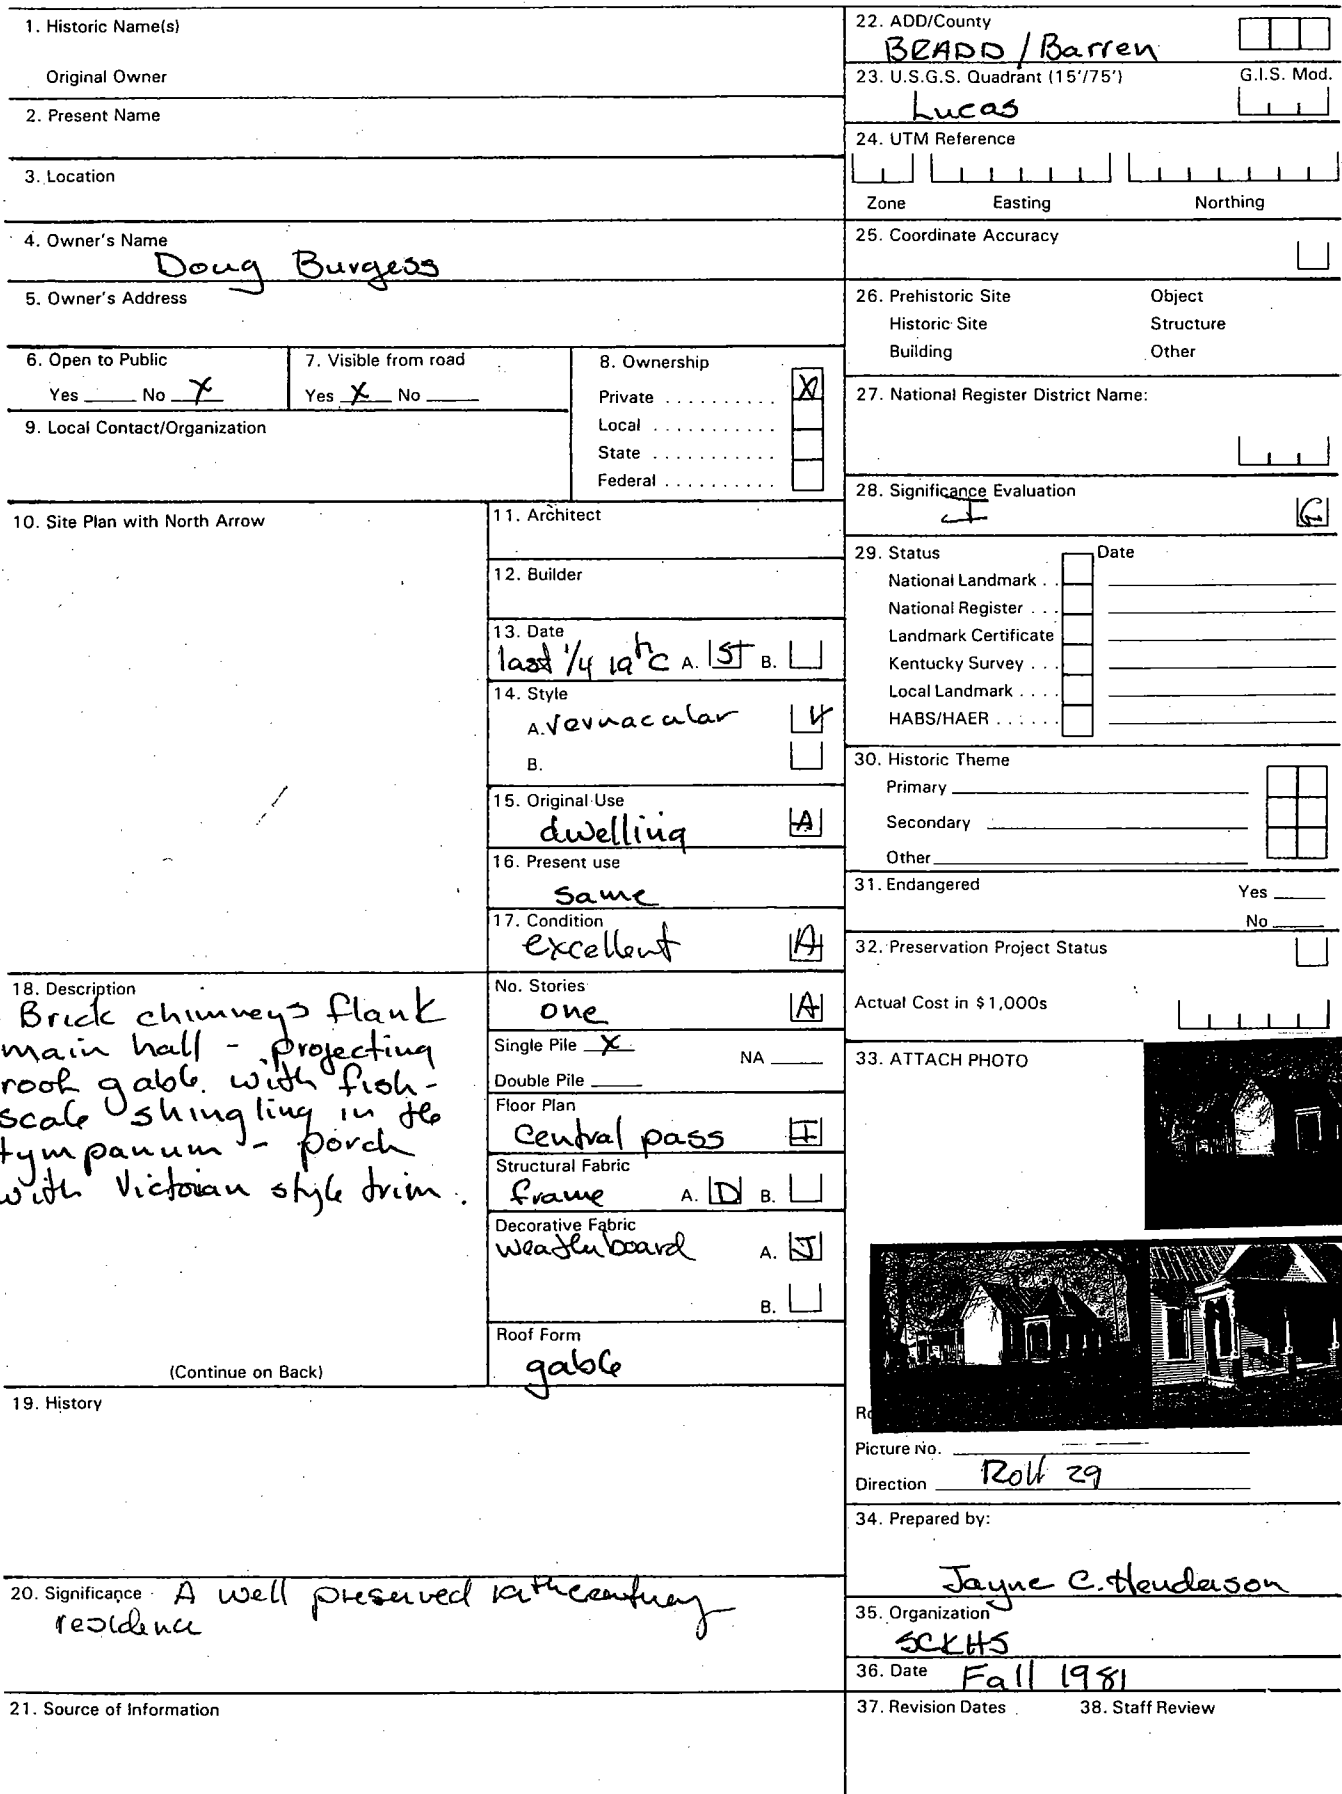 1. Historic Name(s)
Original Owner
2. Present Name
3. Location
4. Owner's Name
Doug Burgess
5. Owner's Address
6. Open to Public
Yes No X
7. Visible from road
Yes X No
8. Ownership
Private .......... X
Local ...........
State ...........
Federal ..........
9. Local Contact/Organization
10. Site Plan with North Arrow
11. Architect
12. Builder
13. Date
last 1/4 19th C A. 5T B.
14. Style
A. vernacular V
B.
15. Original Use
dwelling A
16. Present use
same
17. Condition
excellent A
18. Description
Brick chimneys flank
main hall - projecting
roof gable with fish-
scale shingling in the
tympanum - porch
with Victorian style trim.
(Continue on Back)
No. Stories
one A
Single Pile X
NA
Double Pile
Floor Plan
Central pass I
Structural Fabric
frame A. D B.
Decorative Fabric
weatherboard A. J
B.
Roof Form
gable
19. History
20. Significance A well preserved 19th century
residence
21. Source of Information
22. ADD/County
BRADD / Barren
23. U.S.G.S. Quadrant (15'/75') G.I.S. Mod.
Lucas
24. UTM Reference
Zone Easting Northing
25. Coordinate Accuracy
26. Prehistoric Site Object
Historic Site Structure
Building Other
27. National Register District Name:
28. Significance Evaluation
I G
29. Status Date
National Landmark . .
National Register . . .
Landmark Certificate
Kentucky Survey . . .
Local Landmark . . . .
HABS/HAER . . . . . .
30. Historic Theme
Primary
Secondary
Other
31. Endangered Yes
No
32. Preservation Project Status
Actual Cost in $1,000s
33. ATTACH PHOTO
Picture No.
Direction Roll 29
34. Prepared by:
Jayne C. Henderson
35. Organization
SCKHS
36. Date Fall 1981
37. Revision Dates 38. Staff Review